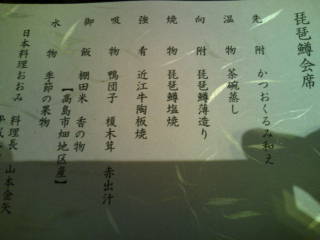 琵琶鱒会席
先附 かつおくるみ和え
温物 茶碗蒸し
向附 琵琶鱒薄造り
焼物 琵琶鱒塩焼
強肴 近江牛陶板焼
吸物 鴨団子 榎木茸 赤出汁
御飯 棚田米 香の物
【高島市畑地区産】
水物 季節の果物
日本料理おおみ
料理長 山本金矢